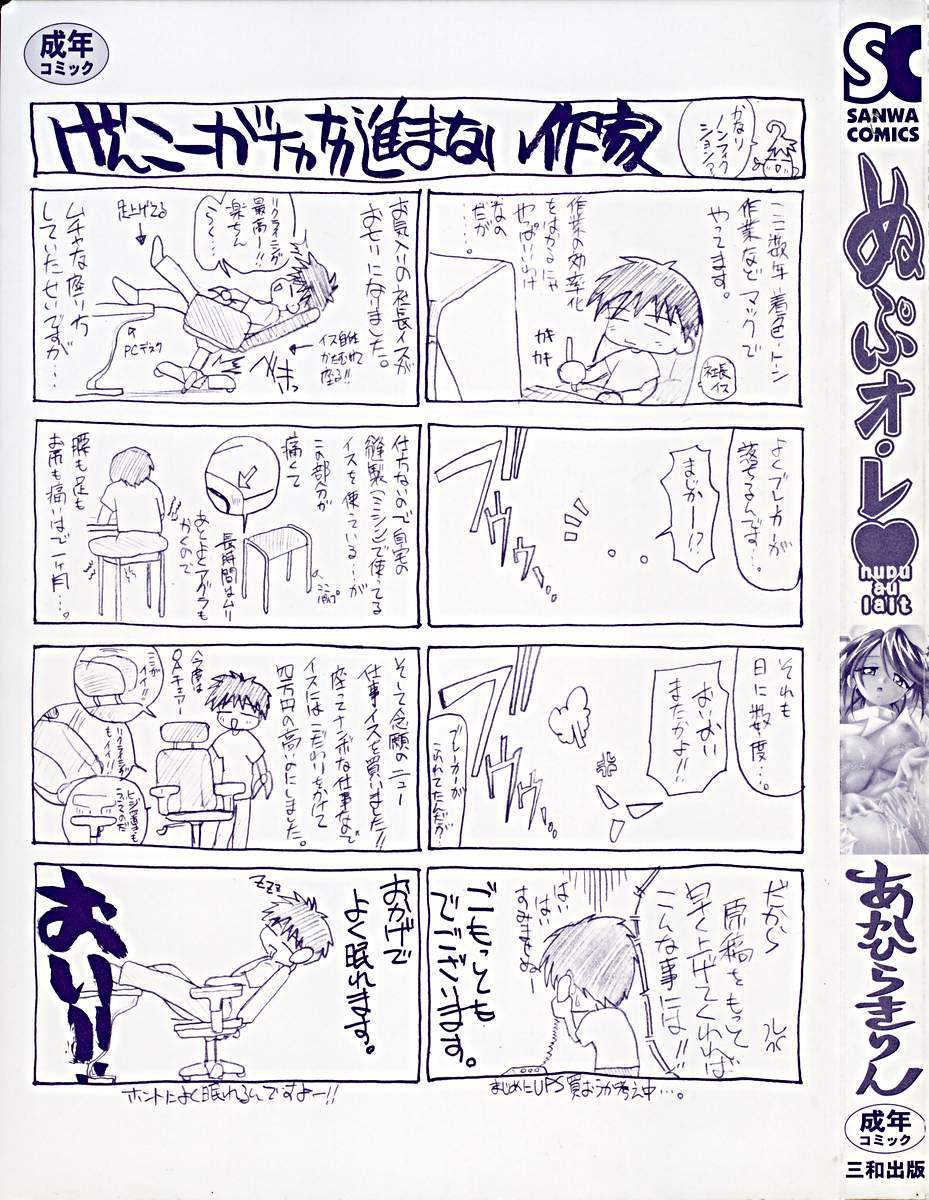 成年
コミック
げんこーがナカナカ進まない作家
かなり
ノンフィク
ション？
ここ数年 着色・トーン
作業などマックで
やってます。
作業の効率化
をはかるにゃ
やっぱいいわけ
なの
だが
……
カキ
カキ
社長
イス
よくブレーカーが
落ちるんです…。
まじかー!?
ブッ
それも
日に数度…。
おいおい
またかよ!!
ブッ
ブレーカーが
ふれてたんだが…
だから
原稿をもって
早く上げてくれれば
こんな事には!!
はい
はい
すみませんねー
ごもっとも
でございます。
まじめにUPS買おうか考え中…。
お気入りの社長イスが
おせリになりました。
リクライニングが
最高ー!!
楽ちん
らくらく…
足上げてる
PCデスク
イス自体
かたむけて
座る!!
ムチャな座り方
していたせいですが…
仕方ないので自宅の
縫製(ミシン)で使ってる
イスを使っている…が
この部分が
痛くて
長時間はムリ
あとよくアグラも
かくので
腰も足も
お尻も痛いはで一ヶ月…。
そして念願のニュー
仕事イスを買いました!!
座ってナンボな仕事なので
イスにはこだわりをかけて
四万円の高いのにしました。
今度は
OAチェアー
ここが
イイ!!
リクライニングが
もイイ!!
おかげで
よく眠れます。
zzz
おい!!
ホントによく眠れるんですよー!!
SC
SANWA
COMICS
ぬぷオ・レ
nupu
au
lait
あかひらきりん
成年
コミック
三和出版